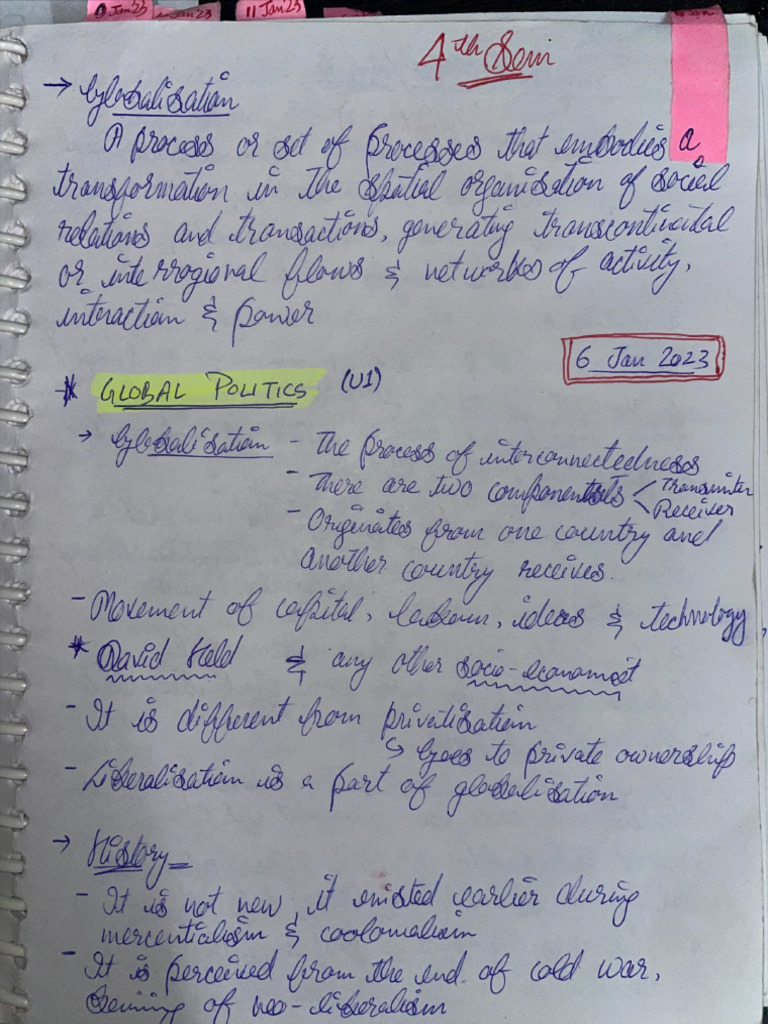 9 Jan'23
Jan'23
11 Jan'23
4th Sem
→ Globalisation
A process or set of processes that embodies a
transformation in the spatial organisation of social
relations and transactions, generating transcontinental
or interregional flows & networks of activity,
interaction & power
6 Jan 2023
* GLOBAL POLITICS (U1)
→ Globalisation - The process of interconnectedness
- There are two components < Transmitter
Receiver
- Originates from one country and
another country receives.
- Movement of capital, labour, ideas & technology,
* David Held & any other socio-economist
- It is different from privitisation
↳ Goes to private ownership
- Liberalisation is a part of globalisation
→ History
- It is not new, it existed earlier during
mercentialism & coolonialism
- It is perceived from the end of cold war,
of neo-liberalism